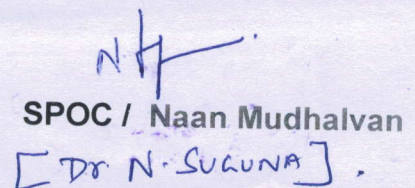 N.
SPOC / Naan Mudhalvan
[Dr. N. SUGUNA].